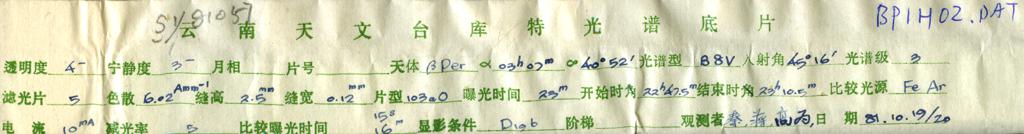 Sy81057 BP1H02.DAT
云南天文台库特光谱底片
透明度 4⁻ 宁静度 3⁻ 月相 片号 天体 βPer α 03ʰ07ᵐ δ 40°52′ 光谱型 B8V 入射角 45°16′ 光谱级 3
滤光片 5 色散 6.02Amm⁻¹ 缝高 2.5ᵐᵐ 缝宽 0.12ᵐᵐ 片型 103aO 曝光时间 23ᵐ 开始时角 22ʰ47.5ᵐ 结束时角 23ʰ10.5ᵐ 比较光源 FeAr
电流 10mA 减光率 5 比较曝光时间 15ˢ 16ᵐ 显影条件 D19b 阶梯 观测者 秦, 蒋, 高为, 日期 81.10.19/20